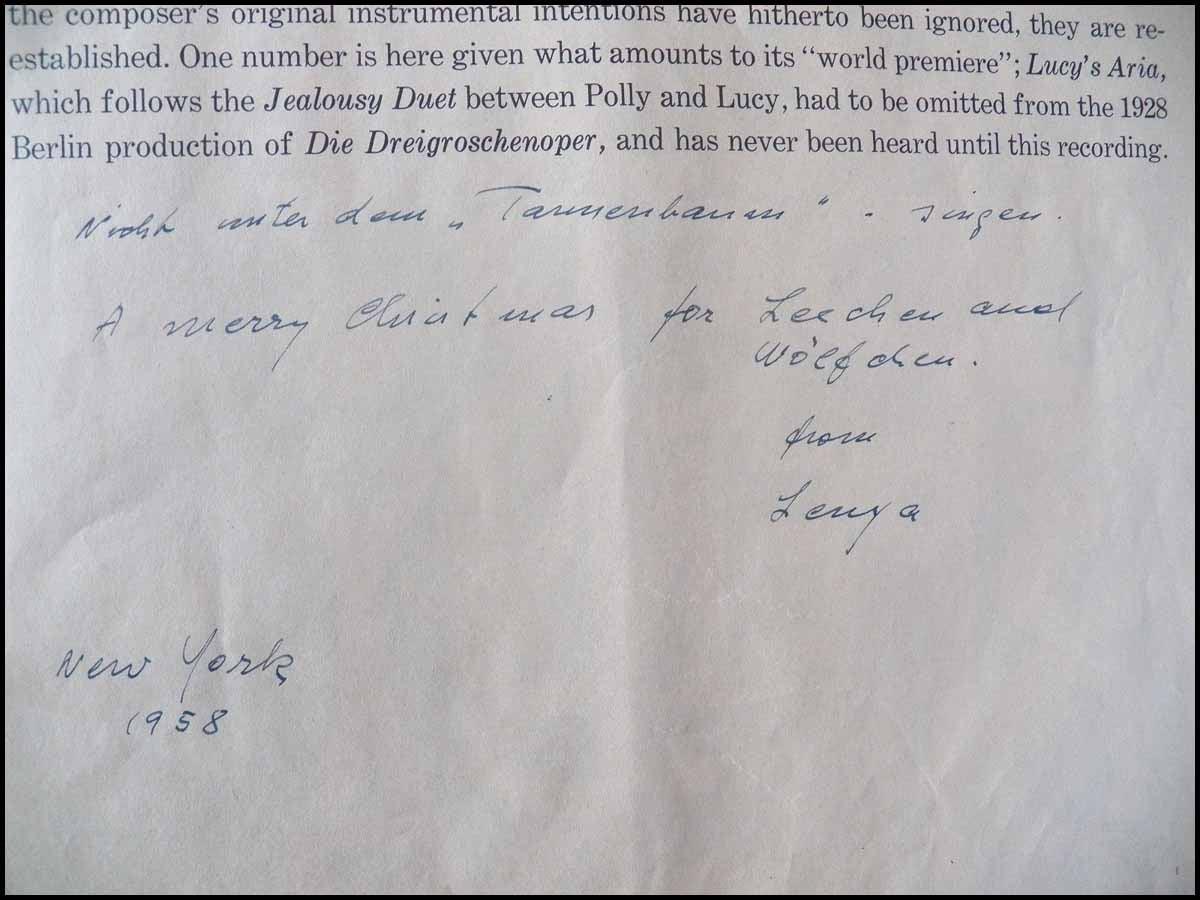 the composer's original instrumental intentions have hitherto been ignored, they are re-
established. One number is here given what amounts to its “world premiere”; Lucy's Aria,
which follows the Jealousy Duet between Polly and Lucy, had to be omitted from the 1928
Berlin production of Die Dreigroschenoper, and has never been heard until this recording.
Nicht unter dem „Tannenbaum“ - singen.
A merry Christmas for Leechen and
Wölfchen.
from
Lenya
New York
1958